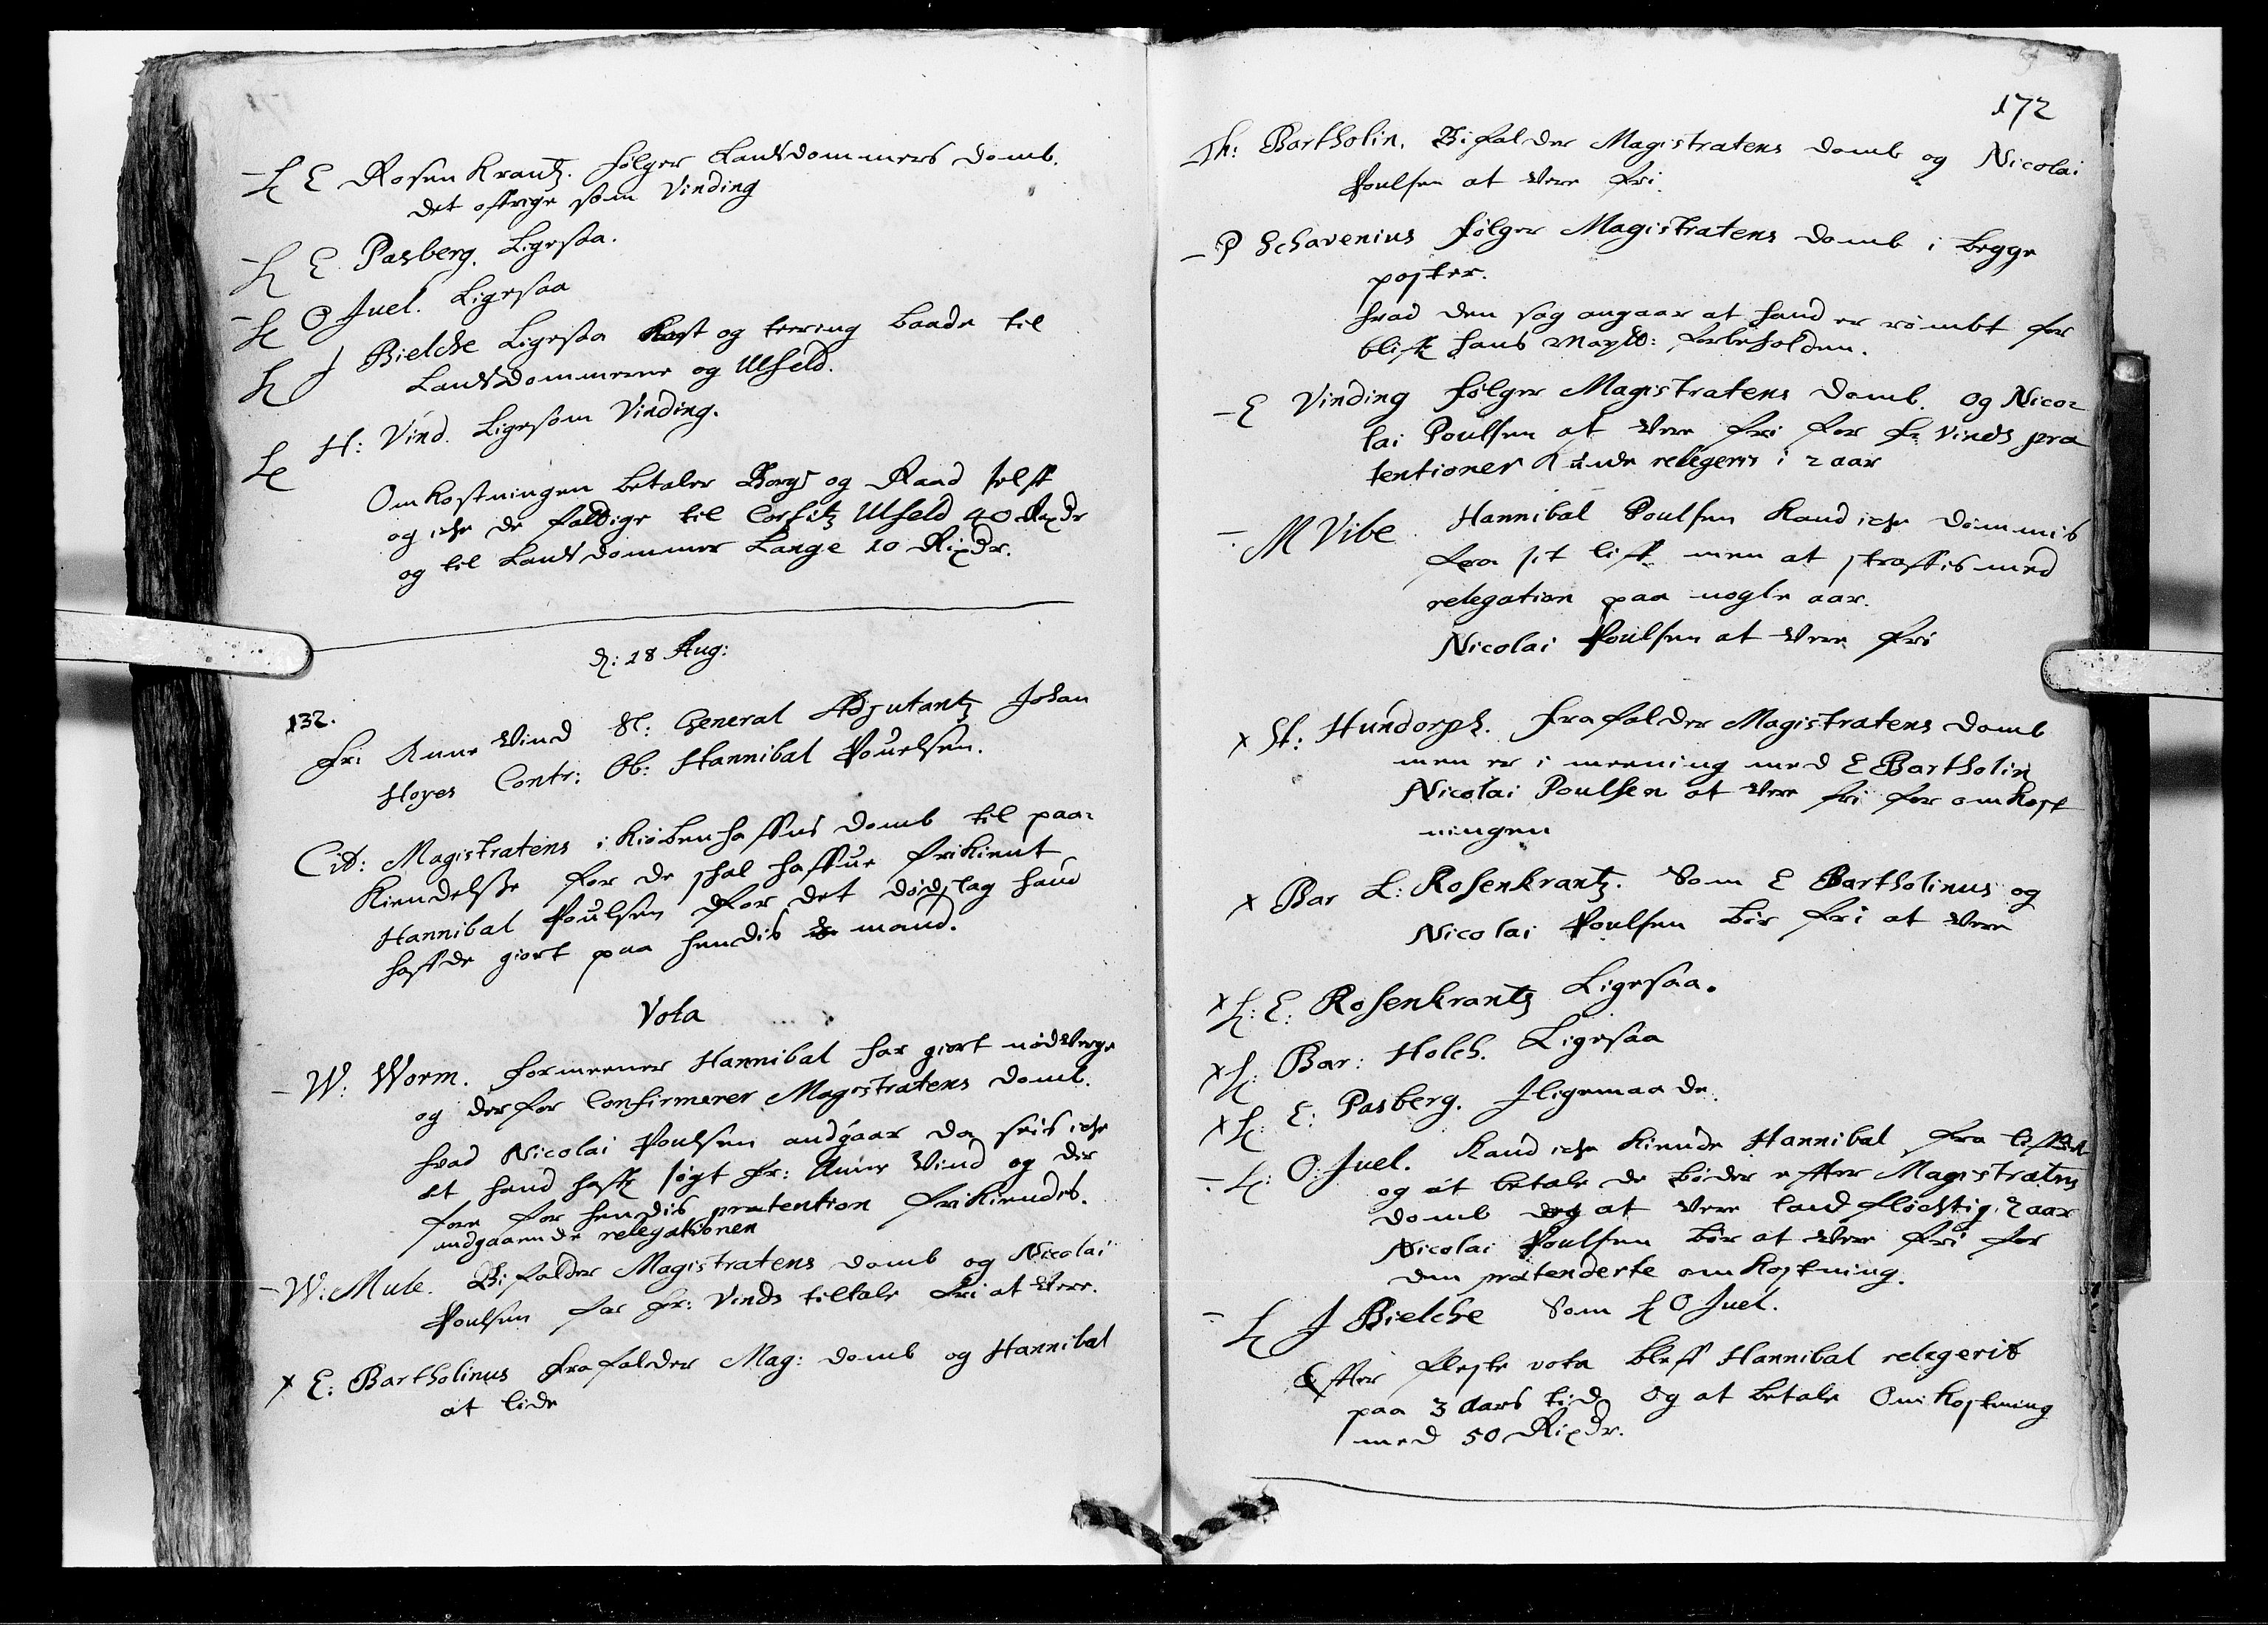 – H E Rosenkrantz. følger Landsdommers domb.
det øfrige som Vinding
– H E Pasberg. Ligesaa.
– H O Juel. Ligesaa
H J Bielche Ligesaa Kost og tæring baade til
Landsdommerne og Ulfeld.
H H: Vind. Ligesom Vinding.
Omkostningen betaler Borg: og Raad selff
og iche de faldige til Corfitz Ulfeld 40 Rixdr
og til Landsdommer Lange 10 Rixdr.
d: 18 Aug:
132.
Fr: Anne Vind Sl: General Adjutantz Johan
Hoyes Contr: Ob: Hannibal Pouelsen.
Cit: Magistratens i Kiøbenhaffns domb til paa=
kiendelse for de shal haffue frikient
Hannibal Poulsen for det dødslag hand
haffde giort paa hendis mand.
Vota
– W: Worm. formeener Hannibal har giort nødverge
og derfor Confirmerer Magistratens domb.
hvad Nicolai Poulsen andgaar da seis iche
at hand haffr søgt Fr: Anne Vind og der
fore for hendis prætention frikiendes.
andgaaende relegationen
– W: Mule. Bifalder Magistratens domb og Nicolai
Poulsen for Fr: Vinds tiltale fri at være.
x E: Bartholinus frafalder Mag: domb og Hannibal
at lide
172
Th: Bartholin. Bifalder Magistratens domb og Nicolai
Poulsen at være fri.
– P Schavenius følger Magistratens domb i begge
poster.
hvad den sag angaar at hand er rømbt for
blifr hans Maytt: forbeholden.
– E Vinding følger Magistratens domb. og Nico=
lai Poulsen at være fri for Fr Vinds præ
tentioner Kunde relegeris i 2 aar
– M Vibe. Hannibal Poulsen kand iche dømmis
fra sit liff men at straffis med
relegation paa nogle aar.
Nicolai Poulsen at være fri
x St: Hundorph. frafalder Magistratens domb
men er i meening med E Bartholin
Nicolai Poulsen at være fri for omkost
ningen
x Bar L: Rosenkrantz. Som E Bartholinus og
Nicolai Poulsen bør fri at være
x H: E: Rosenkrantz Ligesaa.
x H: Bar: Holch. Ligesaa
x H: E: Pasberg. Iligemaade.
– H: O: Juel. kand iche kiende Hannibal fra liffvet
og at betale de bøder effter Magistratens
domb at være landfløchtig 2 aar
Nicolai Poulsen bør at være fri for
den prætenderte omkostning.
– H J Bielche Som H O Juel.
Effter fleste vota bleff Hannibal relegerit
paa 3 aars tid og at betale Omkostning
med 50 Rixdr.